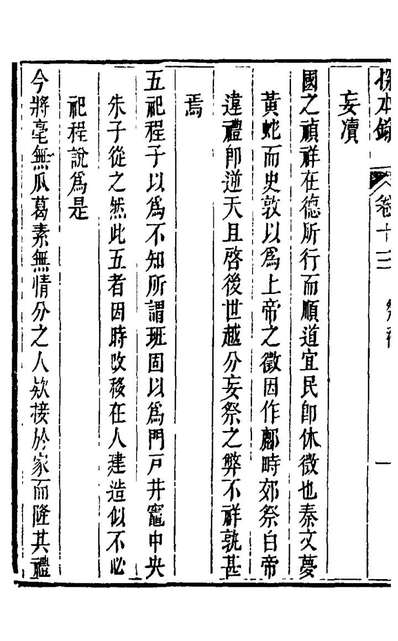 探本錄 卷十三 祭禱 一
妄瀆
國之禎祥在德所行而順道宜民即休徵也秦文夢
黃虵而史敦以為上帝之徵因作鄜畤郊祭白帝
違禮即逆天且啓後世越分妄祭之弊不祥孰甚
焉
五祀程子以為不知所謂班固以為門戶井竈中央
朱子從之然此五者因時改移在人建造似不必
祀程說為是
今將毫無瓜葛素無情分之人欵接於家而隆其禮